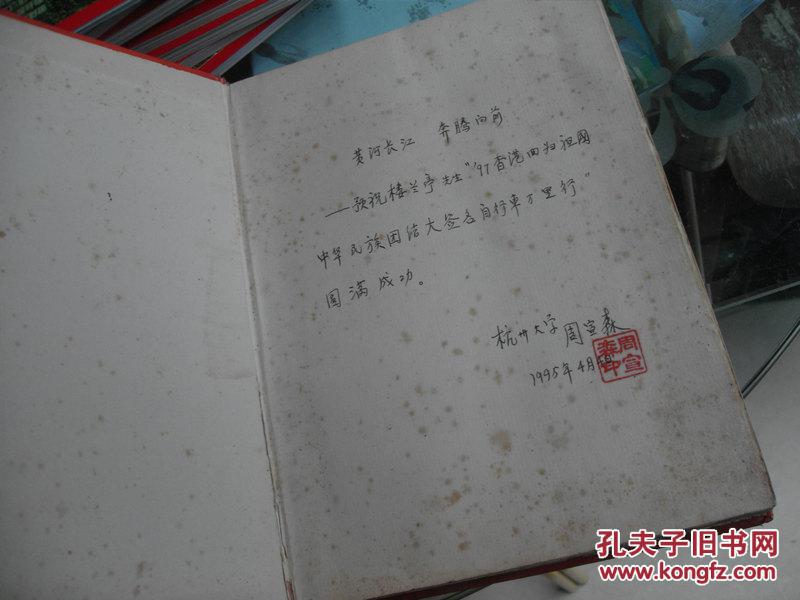 黄河长江 奔腾向前
—预祝楼兰亭先生"'97香港回归祖國
中华民族团结大签名自行車万里行"
圆满成功。
杭州大学 周宣森
1995年4月
周宣森印
孔夫子旧书网
www.kongfz.com